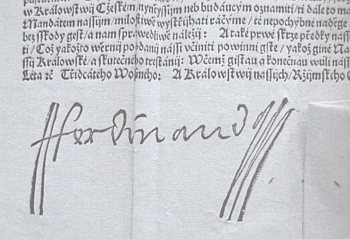 w Králowstwij Cžeském nynějssijm neb budaucým oznamiti / ti dále to ma
Mandátem nassijm / milostiwě wystřijhati ráčyme / té nepochybné naděge
bez sskody gest / a nám sprawedliwě náležij : A také prwé skrze předky nass
ti / Což yakožto wěrnij poddanij nassi včiniti powinni gste / yakož giné Na
ssij Králowské / a skutečného trestánij : W čemž gistau a konečnau wůli nassi
Léta rč Třidcátého Wosmého : A Králowstwij nassijch / Ržijmského
Ferdinand